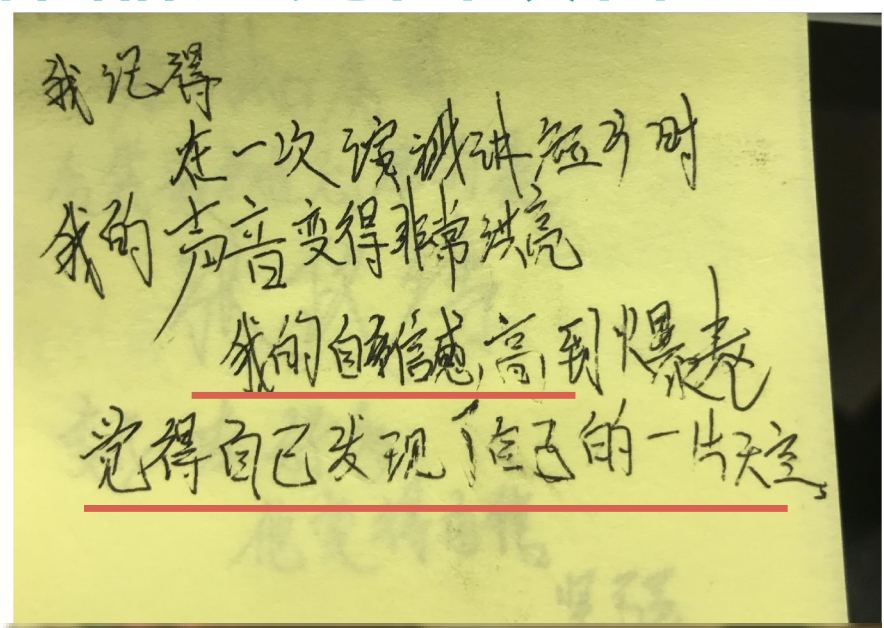 我记得
在一次演讲时
我的声音变得非常洪亮
我的自信感高到爆表
觉得自己发现了自己的一片天空。